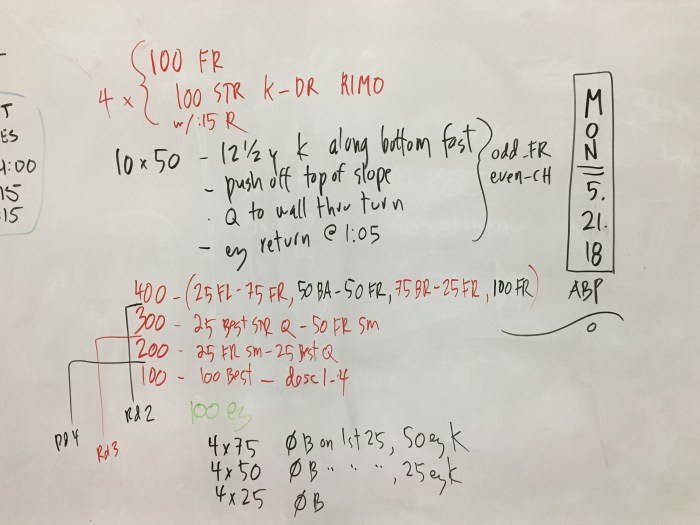 T
ES
4:00
15
:15
100 FR
4 x 100 STR K-DR RIMO
w/:15 R
10 x 50 - 12 1/2 y k along bottom fast
- push off top of slope
. Q to wall thru turn
- ez return @ 1:05
odd-FR
even-CH
MON
5.
21.
18
ABP
400 - (25 FL-75 FR, 50 BA-50 FR, 75 BR-25 FR, 100 FR)
300 - 25 Best STR Q - 50 FR sm
200 - 25 FR sm-25 Best Q
100 - 100 Best - desc 1-4
Rd 2
Rd 3
Rd 4
100 ez
4 x 75 ØB on 1st 25, 50 ez K
4 x 50 ØB " " ", 25 ez K
4 x 25 ØB